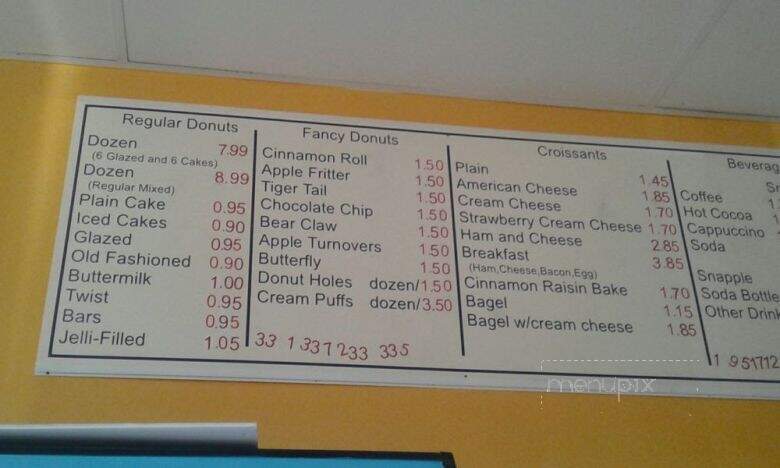 Regular Donuts
Dozen 7.99
(6 Glazed and 6 Cakes)
Dozen 8.99
(Regular Mixed)
Plain Cake 0.95
Iced Cakes 0.90
Glazed 0.95
Old Fashioned 0.90
Buttermilk 1.00
Twist 0.95
Bars 0.95
Jelli-Filled 1.05
Fancy Donuts
Cinnamon Roll 1.50
Apple Fritter 1.50
Tiger Tail 1.50
Chocolate Chip 1.50
Bear Claw 1.50
Apple Turnovers 1.50
Butterfly 1.50
Donut Holes dozen/1.50
Cream Puffs dozen/3.50
33 1 337233 335
Croissants
Plain 1.45
American Cheese 1.85
Cream Cheese 1.70
Strawberry Cream Cheese 1.70
Ham and Cheese 2.85
Breakfast 3.85
(Ham,Cheese,Bacon,Egg)
Cinnamon Raisin Bake 1.70
Bagel 1.15
Bagel w/cream cheese 1.85
Beverag
Coffee
Hot Cocoa
Cappuccino
Soda
Snapple
Soda Bottle
Other Drink
1 951712
menupix